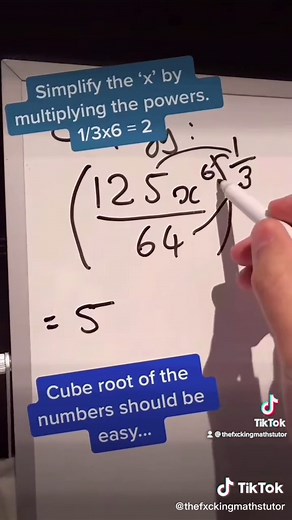 Simplify the 'x' by
multiplying the powers.
1/3x6 = 2
(125x⁶/64)^1/3
= 5
Cube root of the
numbers should be
easy...
TikTok
@thefxckingmathstutor
TikTok
@thefxckingmathstutor